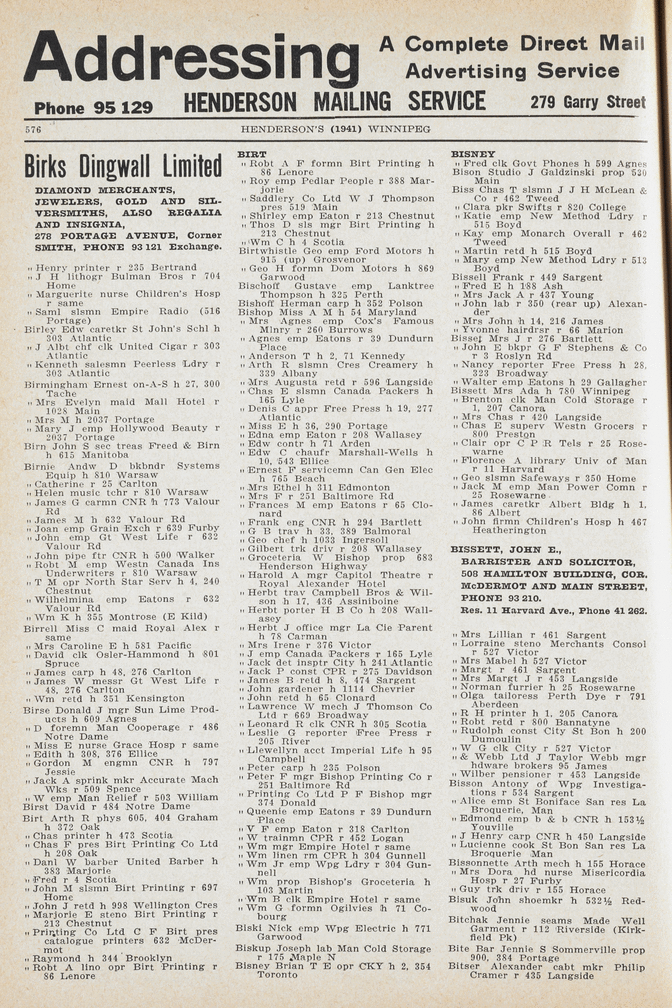 Addressing
A Complete Direct Mail
Advertising Service
Phone 95 129 HENDERSON MAILING SERVICE 279 Garry Street
576 HENDERSON'S (1941) WINNIPEG
Birks Dingwall Limited
DIAMOND MERCHANTS,
JEWELERS, GOLD AND SIL-
VERSMITHS, ALSO REGALIA
AND INSIGNIA,
278 PORTAGE AVENUE, Corner
SMITH, PHONE 93 121 Exchange.
" Henry printer r 235 Bertrand
" J H lithogr Bulman Bros r 704
Home
" Marguerite nurse Children's Hosp
r same
" Saml slsmn Empire Radio (516
Portage)
Birley Edw caretkr St John's Schl h
303 Atlantic
" J Albt chf clk United Cigar r 303
Atlantic
" Kenneth salesmn Peerless Ldry r
303 Atlantic
Birmingham Ernest on-A-S h 27, 300
Tache
" Mrs Evelyn maid Mall Hotel r
1028 Main
" Mrs M h 2037 Portage
" Mary J emp Hollywood Beauty r
2037 Portage
Birn John S sec treas Freed & Birn
h 615 Manitoba
Birnie Andw D bkbndr Systems
Equip h 810 Warsaw
" Catherine r 25 Carlton
" Helen music tchr r 810 Warsaw
" James G carmn CNR h 773 Valour
Rd
" James M h 632 Valour Rd
" Joan emp Grain Exch r 639 Furby
" John emp Gt West Life r 632
Valour Rd
" John pipe ftr CNR h 500 Walker
" Robt M emp Westn Canada Ins
Underwriters r 810 Warsaw
" T M opr North Star Serv h 4, 240
Chestnut
" Wilhelmina emp Eatons r 632
Valour Rd
" Wm K h 355 Montrose (E Kild)
Birrell Miss C maid Royal Alex r
same
" Mrs Caroline E h 581 Pacific
" David clk Osler-Hammond h 801
Spruce
" James carp h 48, 276 Carlton
" James W messr Gt West Life r
48, 276 Carlton
" Wm retd h 351 Kensington
Birse Donald J mgr Sun Lime Prod-
ucts h 609 Agnes
" D foremn Man Cooperage r 486
Notre Dame
" Miss E nurse Grace Hosp r same
" Edith h 308, 376 Ellice
" Gordon M engmn CNR h 797
Jessie
" Jack A sprink mkr Accurate Mach
Wks r 509 Spence
" W emp Man Relief r 503 William
Birst David r 484 Notre Dame
Birt Arth R phys 605, 404 Graham
h 372 Oak
" Chas printer h 473 Scotia
" Chas F pres Birt Printing Co Ltd
h 208 Oak
" Danl W barber United Barber h
383 Marjorie
" Fred r 4 Scotia
" John M slsmn Birt Printing r 697
Home
" John J retd h 998 Wellington Cres
" Marjorie E steno Birt Printing r
213 Chestnut
" Printing Co Ltd C F Birt pres
catalogue printers 632 McDer-
mot
" Raymond h 344 Brooklyn
" Robt A lino opr Birt Printing r
86 Lenore
BIRT
" Robt A F formn Birt Printing h
86 Lenore
" Roy emp Pedlar People r 388 Mar-
jorie
" Saddlery Co Ltd W J Thompson
pres 519 Main
" Shirley emp Eaton r 213 Chestnut
" Thos D sls mgr Birt Printing h
213 Chestnut
" Wm C h 4 Scotia
Birtwhistle Geo emp Ford Motors h
915 (up) Grosvenor
" Geo H formn Dom Motors h 869
Garwood
Bischoff Gustave emp Lanktree
Thompson h 325 Perth
Bishoff Herman carp h 352 Polson
Bishop Miss A M h 54 Maryland
" Mrs Agnes emp Cox's Famous
Minry r 260 Burrows
" Agnes emp Eatons r 39 Dundurn
Place
" Anderson T h 2, 71 Kennedy
" Arth R slsmn Cres Creamery h
339 Albany
" Mrs Augusta retd r 596 Langside
" Chas E slsmn Canada Packers h
165 Lyle
" Denis C appr Free Press h 19, 277
Atlantic
" Miss E h 36, 290 Portage
" Edna emp Eaton r 208 Wallasey
" Edw contr h 71 Arden
" Edw C chaufr Marshall-Wells h
10, 543 Ellice
" Ernest F servicemn Can Gen Elec
h 765 Beach
" Mrs Ethel h 311 Edmonton
" Mrs F r 251 Baltimore Rd
" Frances M emp Eatons r 65 Clo-
nard
" Frank eng CNR h 294 Bartlett
" G B trav h 33, 389 Balmoral
" Geo chef h 1033 Ingersoll
" Gilbert trk driv r 208 Wallasey
" Groceteria W Bishop prop 683
Henderson Highway
" Harold A mgr Capitol Theatre r
Royal Alexander Hotel
" Herbt trav Campbell Bros & Wil-
son h 17, 436 Assiniboine
" Herbt porter H B Co h 208 Wall-
asey
" Herbt J office mgr La Cie Parent
h 78 Carman
" Mrs Irene r 376 Victor
" J emp Canada Packers r 165 Lyle
" Jack det insptr City h 241 Atlantic
" Jack P const CPR r 275 Davidson
" James B retd h 8, 474 Sargent
" John gardener h 1114 Chevrier
" John retd h 65 Clonard
" Lawrence W mech J Thomson Co
Ltd r 669 Broadway
" Leonard R clk CNR h 305 Scotia
" Leslie G reporter Free Press r
205 River
" Llewellyn acct Imperial Life h 95
Campbell
" Peter carp h 235 Polson
" Peter F mgr Bishop Printing Co r
251 Baltimore Rd
" Printing Co Ltd P F Bishop mgr
374 Donald
" Queenie emp Eatons r 39 Dundurn
Place
" V F emp Eaton r 318 Carlton
" W trainmn CPR r 452 Logan
" Wm mgr Empire Hotel r same
" Wm linen rm CPR h 304 Gunnell
" Wm Jr emp Wpg Ldry r 304 Gun-
nell
" Wm prop Bishop's Groceteria h
103 Martin
" Wm B clk Empire Hotel r same
" Wm G formn Ogilvies h 71 Co-
bourg
Biski Nick emp Wpg Electric h 771
Garwood
Biskup Joseph lab Man Cold Storage
r 175 Maple N
Bisney Brian T E opr CKY h 2, 354
Toronto
BISNEY
" Fred clk Govt Phones h 599 Agnes
Bison Studio J Galdzinski prop 520
Main
Biss Chas T slsmn J J H McLean &
Co r 462 Tweed
" Clara pkr Swifts r 820 College
" Katie emp New Method Ldry r
515 Boyd
" Kay emp Monarch Overall r 462
Tweed
" Martin retd h 515 Boyd
" Mary emp New Method Ldry r 513
Boyd
Bissell Frank r 449 Sargent
" Fred E h 188 Ash
" Mrs Jack A r 437 Young
" John lab r 350 (rear up) Alexan-
der
" Mrs John h 14, 216 James
" Yvonne hairdrsr r 66 Marion
Bisset Mrs J r 276 Bartlett
" John E bkpr G F Stephens & Co
r 3 Roslyn Rd
" Nancy reporter Free Press h 28,
323 Broadway
" Walter emp Eatons h 29 Gallagher
Bissett Mrs Ada h 780 Winnipeg
" Brenton clk Man Cold Storage r
1, 207 Canora
" Mrs Chas r 420 Langside
" Chas E superv Westn Grocers r
800 Preston
" Clair opr C P R Tels r 25 Rose-
warne
" Florence A library Univ of Man
r 11 Harvard
" Geo slsmn Safeways r 350 Home
" Jack M emp Man Power Comn r
25 Rosewarne
" James caretkr Albert Bldg h 1,
86 Albert
" John firmn Children's Hosp h 467
Heatherington
BISSETT, JOHN E.,
BARRISTER AND SOLICITOR,
508 HAMILTON BUILDING, COR.
McDERMOT AND MAIN STREET,
PHONE 93 210.
Res. 11 Harvard Ave., Phone 41 262.
" Mrs Lillian r 461 Sargent
" Lorraine steno Merchants Consol
r 527 Victor
" Mrs Mabel h 527 Victor
" Margt r 461 Sargent
" Mrs Margt J r 453 Langside
" Norman furrier h 25 Rosewarne
" Olga tailoress Perth Dye r 791
Aberdeen
" R H printer h 1, 205 Canora
" Robt retd r 800 Bannatyne
" Rudolph const City St Bon h 200
Dumoulin
" W G clk City r 527 Victor
" & Webb Ltd J Taylor Webb mgr
hdware brokers 95 James
" Wilber pensioner r 453 Langside
Bisson Antony of Wpg Investiga-
tions r 534 Sargent
" Alice emp St Boniface San res La
Broquerie, Man
" Edmond emp b & b CNR h 153½
Youville
" J Henry carp CNR h 450 Langside
" Lucienne cook St Bon San res La
Broquerie Man
Bissonnette Arth mech h 155 Horace
" Mrs Dora hd nurse Misericordia
Hosp r 27 Furby
" Guy trk driv r 155 Horace
Bisuk John shoemkr h 532½ Red-
wood
Bitchak Jennie seams Made Well
Garment r 112 Riverside (Kirk-
field Pk)
Bite Bar Jennie S Sommerville prop
900, 384 Portage
Bitser Alexander cabt mkr Philip
Cramer r 435 Langside